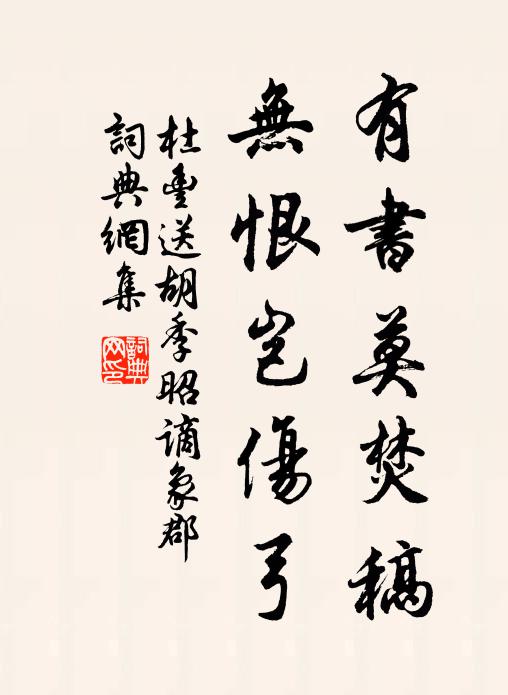 有書莫焚稿
無恨豈傷弓
杜耒送胡季昭謫象郡
詞典網集
詞典网印